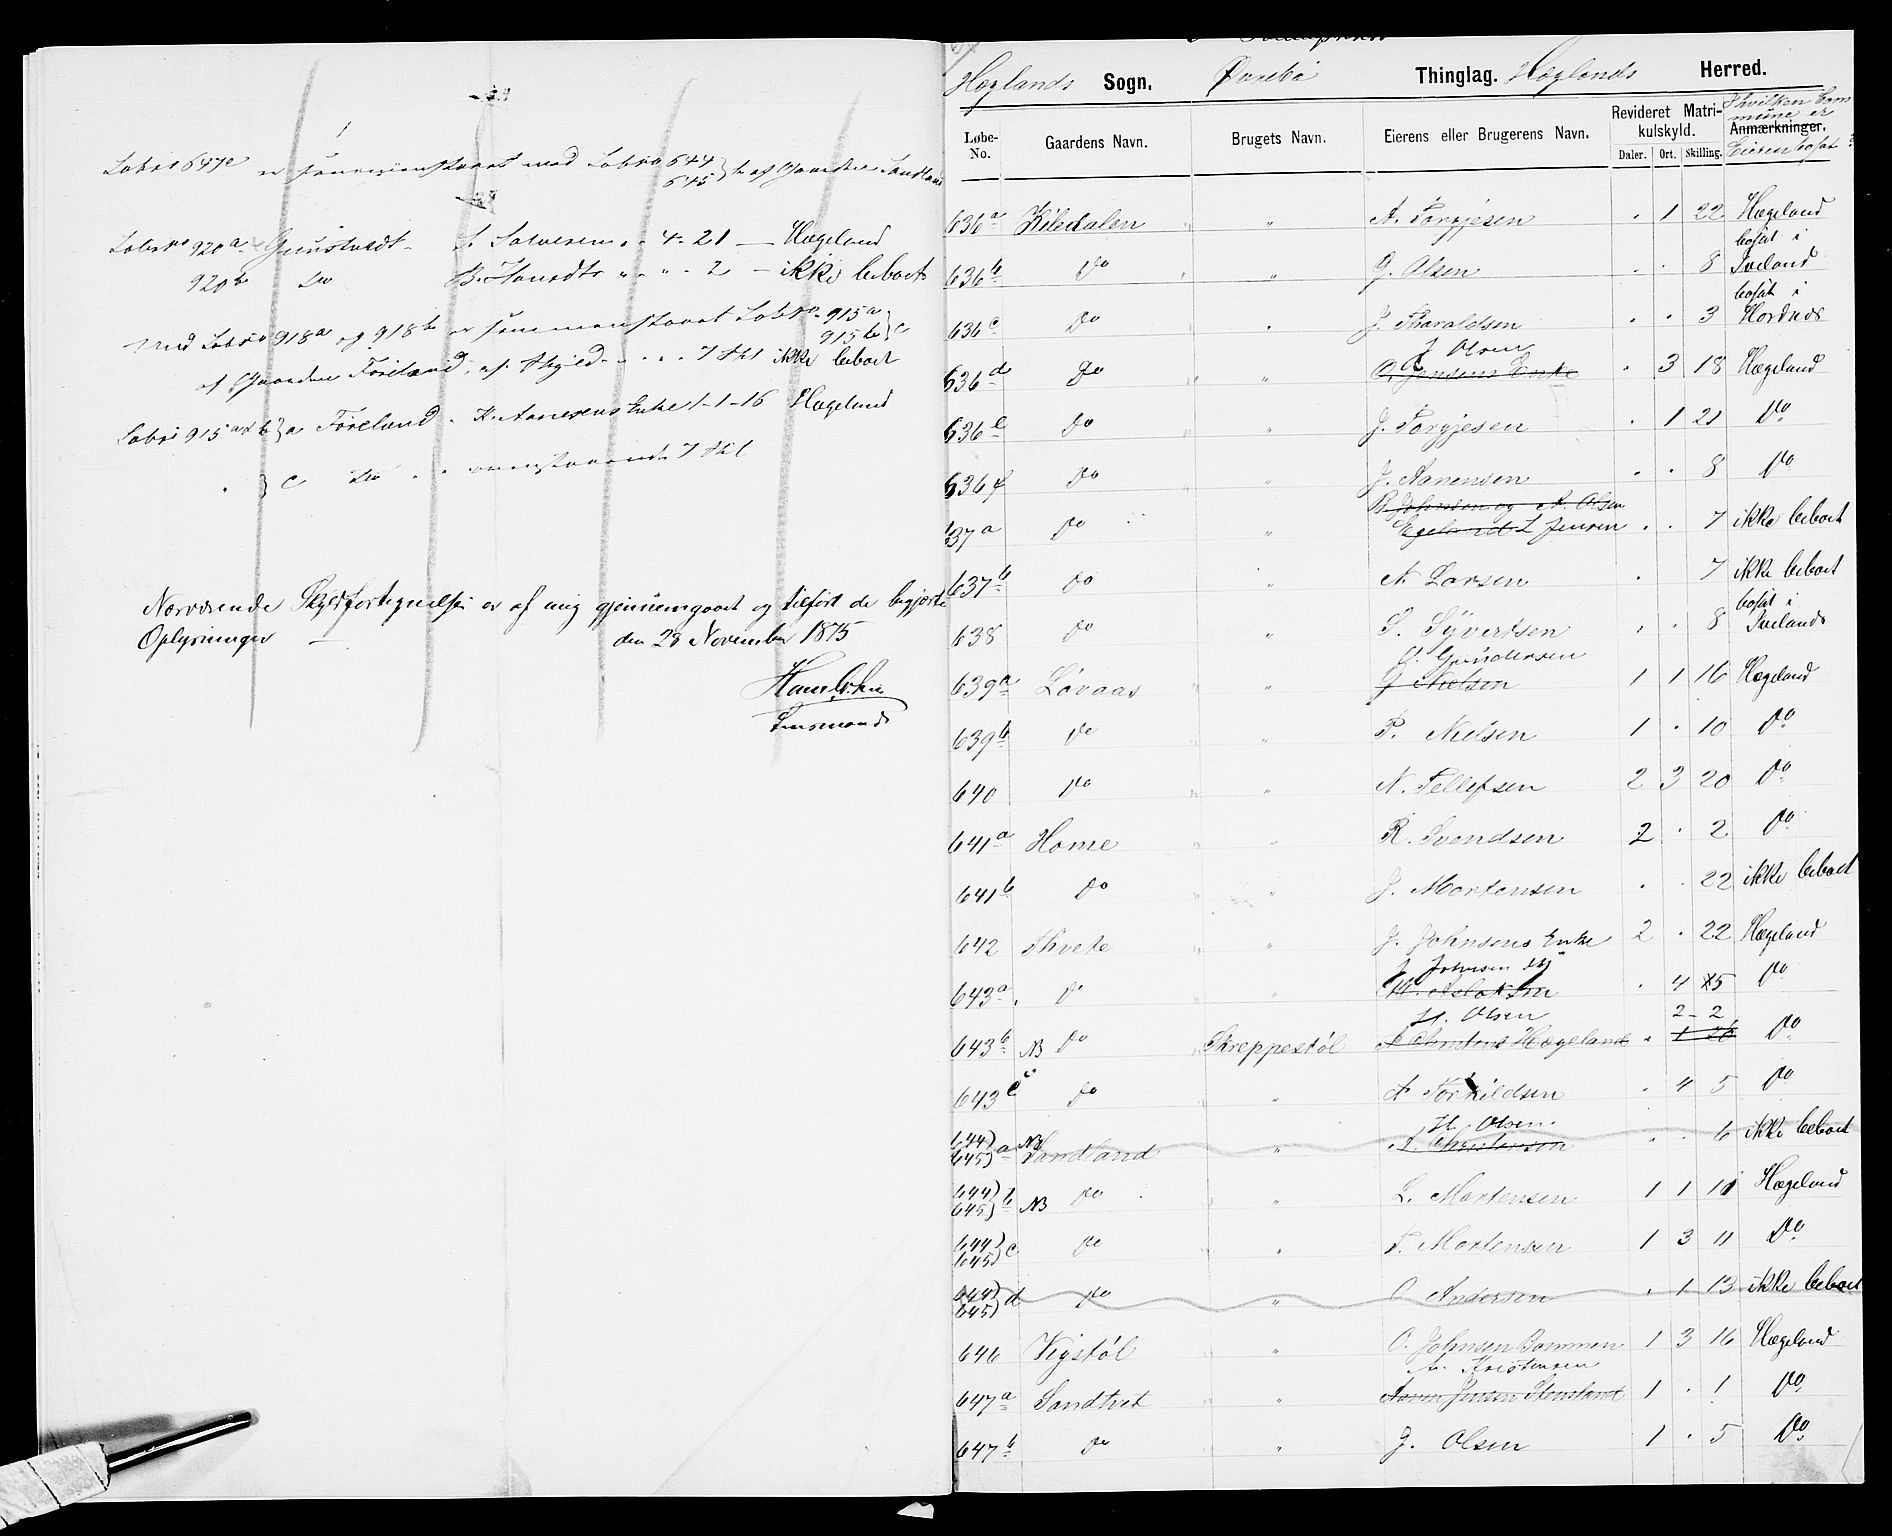 Løbno 647c er sammenskaaret med Løbno 644 645 } b af Gaarden Sandland
Løbno 920a Grundtvedt S. Salvesen „ 4 - 21 — Hægeland
920b Do B. Hanedts „ „ 2 — ikke beboet
Med Løbno 918a og 918b er sammenskaaret Løbno 915a 915b } c
af Gaarden Føreland, af Skyld „ „ 7 Skl ikke beboet
Løbno 915 a & b } a Føreland K. Aanesens Enke 1-1-16 Hægeland
„ } c Do „ ovenstaaende 7 Skl
Nærværende Skyldfortegnelse er af mig gjennemgaaet og tilført de begjærte
Oplysninger —
den 28 November 1875
Lensmand
Hæglands Sogn. Øvrebø Thinglag. Hæglands Herred.
Løbe-No. Gaardens Navn. Brugets Navn. Eierens eller Brugerens Navn. Revideret Matrikulskyld. Anmærkninger. I hvilken Commune er Eieren bosat?
Daler. Ort. Skilling.
636a Kiledalen „ „ A. Torgjesen . 1 22 Hægeland
636b Do „ „ G. Olsen . . 8 bosat i Iveland
636c Do „ J. Tharaldsen . . 3 bosat i Hordnæs
636d Do „ „ J Olsen O. Jensens Enke . 3 18 Hægeland
636e Do „ „ J. Torgjesen . 1 21 Do
636f Do „ „ J. Aanensen . . 8 Do
637a Do „ B. Johnsen og A. Olsen Egeland L Jensen . . 7 ikke beboet
637b Do „ N Larsen . 7 ikke beboet
638 Do „ S. Syvertsen . . 8 bosat i Ivelands
639a Løvaas „ „ O. Gundersen G Nielsen 1 1 16 Hægeland
639b Do „ „ P. Nielsen 1 . 10 Do
640 Do „ „ N. Tellefsen 2 3 20 Do
641a Home „ „ R. Svendsen 2 . 2 Do
641b Do „ „ J. Mortensen . . 22 ikke beboet
642 Thvete „ „ J. Johnsens Enke 2 . 22 Hægeland
643a Do „ „ J Johnsen Aslaksen . 4 5 Do
643b NB Do Skreppestøl H. Olsen A Christens Hægeland „ 2 - 2 1 26 Do
643c Do „ „ A Torkildsen . 4 5 Do
644) 645) a NB Sandland „ H. Olsen A. Christensen . . 6 ikke beboet
644) 645) b NB Do „ „ L. Mortensen 1 1 11 Hægeland
644) 645) c Do „ „ T. Mortensen 1 3 11 Do
644) 645) d Do „ „ O Andersen . 1 13 ikke beboet
646 Vigstøl „ O. Johnsen Bommen 1 3 16 Hægeland
647a Sandtvet „ Kristensen Aanen Jensen 1 . 1 Do
647b Do „ J. Olsen 1 . 5 Do